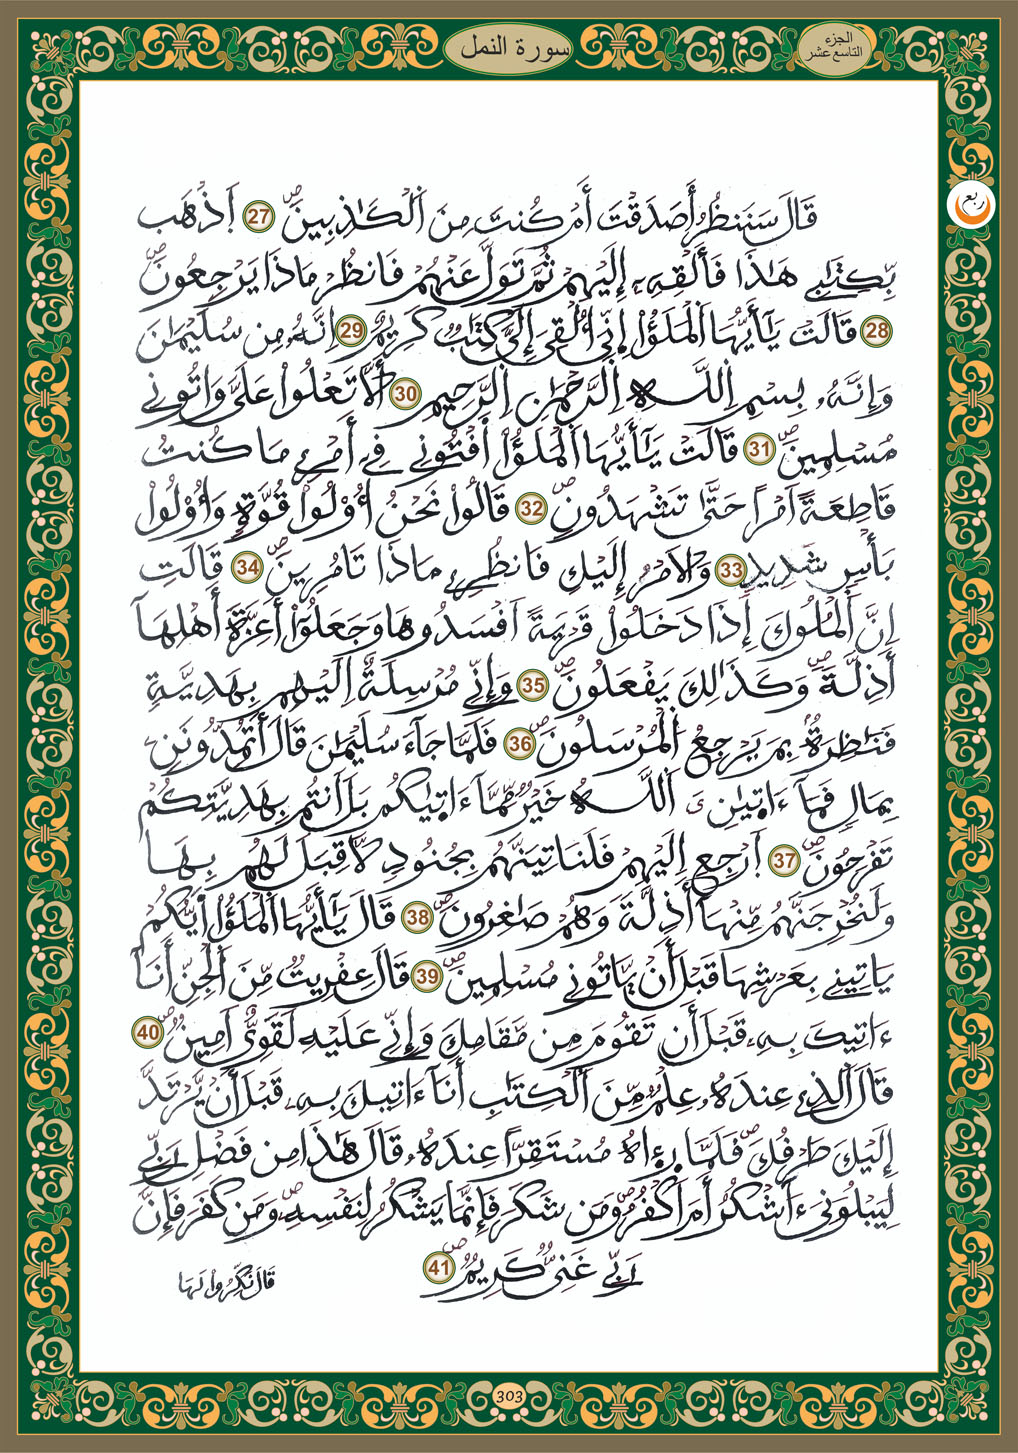 سورة النمل
الجزء
التاسع عشر
ربع
قَالَ سَنَنظُرُ أَصَدَقْتَ أَمْ كُنتَ مِنَ اَلْكَٰذِبِينَۖ 27 اَ۪ذْهَب
بِّكِتَٰبِے هَٰذَا فَأَلْقِهِۦ إِلَيْهِمْ ثُمَّ تَوَلَّ عَنْهُمْ فَانظُرْ مَاذَا يَرْجِعُونَۖ
28 قَالَتْ يَٰٓأَيُّهَا اَ۬لْمَلَؤُاْ إِنِّيَ أُلْقِيَ إِلَيَّ كِتَٰبٞ كَرِيمٌ 29 اِنَّهُۥ مِن سُلَيْمَٰنَ
وَإِنَّهُۥ بِسْمِ اِ۬للَّهِ اِ۬لرَّحْمَٰنِ اِ۬لرَّحِيمِ 30 أَلَّا تَعْلُواْ عَلَيَّ وَاتُونِے
مُسْلِمِينَۖ 31 قَالَتْ يَٰٓأَيُّهَا اَ۬لْمَلَؤُاْ اَفْتُونِے فِےٓ أَمْرِے مَا كُنتُ
قَاطِعَةً اَمْراً حَتَّىٰ تَشْهَدُونِۖ 32 قَالُواْ نَحْنُ أُوْلُواْ قُوَّةٖ وَأُوْلُواْ
بَأْسٖ شَدِيدٖ 33 وَالَامْرُ إِلَيْكِ فَانظُرِے مَاذَا تَامُرِينَۖ 34 قَالَتِ
اِنَّ اَ۬لْمُلُوكَ إِذَا دَخَلُواْ قَرْيَةً اَفْسَدُوهَا وَجَعَلُوٓاْ أَعِزَّةَ أَهْلِهَآ
أَذِلَّةٗۖ وَكَذَٰلِكَ يَفْعَلُونَۖ 35 وَإِنِّے مُرْسِلَةٌ اِلَيْهِم بِهَدِيَّةٖ
فَنَاظِرَةُۢ بِمَ يَرْجِعُ اُ۬لْمُرْسَلُونَۖ 36 فَلَمَّا جَآءَ سُلَيْمَٰنَ قَالَ أَتُمِدُّونَنِۦ
بِمَالٖ فَمَآ ءَاتَيٰنِۦَ اَ۬للَّهُ خَيْرٞ مِّمَّآ ءَاتَيٰكُم بَلَ اَنتُم بِهَدِيَّتِكُمْ
تَفْرَحُونَۖ 37 اَ۪رْجِعِ اِلَيْهِمْ فَلَنَاتِيَنَّهُم بِجُنُودٖ لَّا قِبَلَ لَهُم بِهَا
وَلَنُخْرِجَنَّهُم مِّنْهَآ أَذِلَّةٗ وَهُمْ صَٰغِرُونَۖ 38 قَالَ يَٰٓأَيُّهَا اَ۬لْمَلَؤُاْ اَيُّكُمْ
يَاتِينِے بِعَرْشِهَا قَبْلَ أَنْ يَّاتُونِے مُسْلِمِينَۖ 39 قَالَ عِفْرِيتٞ مِّنَ اَ۬لْجِنِّ أَنَآ
ءَاتِيكَ بِهِۦ قَبْلَ أَن تَقُومَ مِن مَّقَامِكَ وَإِنِّے عَلَيْهِ لَقَوِيٌّ اَمِينٞۖ 40
قَالَ اَ۬لذِے عِندَهُۥ عِلْمٞ مِّنَ اَ۬لْكِتَٰبِ أَنَآ ءَاتِيكَ بِهِۦ قَبْلَ أَنْ يَّرْتَدَّ
إِلَيْكَ طَرْفُكَۖ فَلَمَّا رَءِاهُ مُسْتَقِرّاً عِندَهُۥ قَالَ هَٰذَا مِن فَضْلِ رَبِّے
لِيَبْلُوَنِيَ ءَآشْكُرُ أَمَ اَكْفُرُۖ وَمَن شَكَرَ فَإِنَّمَا يَشْكُرُ لِنَفْسِهِۦۖ وَمَن كَفَرَ فَإِنَّ
رَبِّے غَنِيّٞ كَرِيمٞۖ 41
قَالَ نَكِّرُواْ لَهَا
303